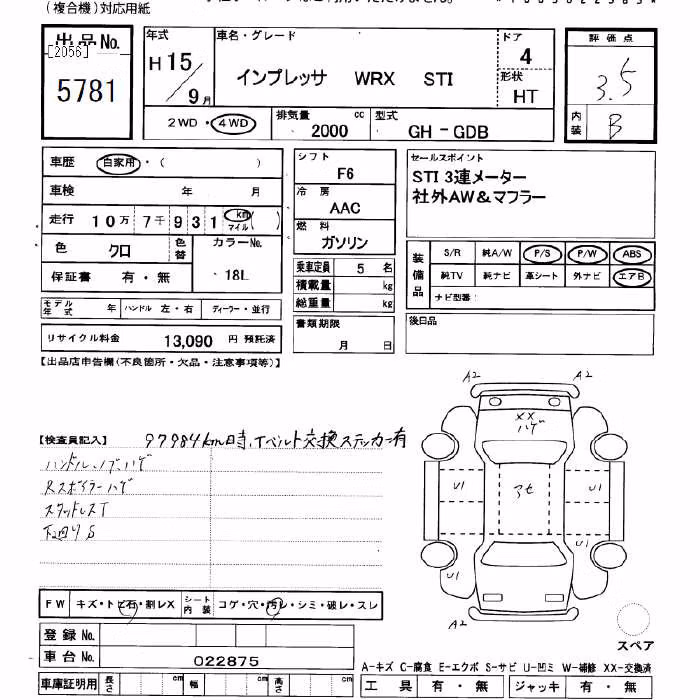 (複合機)対応用紙
出品No.
[2056]
5781
年式
H15/9月
車名・グレード
インプレッサ WRX STI
ドア
4
形状
HT
評価点
3.5
内装
B
2WD・4WD
排気量
2000 cc
型式
GH-GDB
車歴 自家用・( )
車検 年 月
走行 10万7千931 km マイル ( )
色 クロ
色替
カラーNo.
18L
保証書 有・無
シフト
F6
冷房
AAC
燃料
ガソリン
乗車定員 5 名
積載量 kg
総重量 kg
セールスポイント
STI 3連メーター
社外AW&マフラー
装備品
S/R 純A/W P/S P/W ABS
純TV 純ナビ 革シート 外ナビ エアB
ナビ型番:
モデル年式 年 ハンドル 左・右 ディーラー・並行
リサイクル料金 13,090 円 預託済
書類期限
月 日
後日品
【出品店申告欄(不良箇所・欠品・注意事項等)】
【検査員記入】 97984km時、Tベルト交換ステッカー有
ハンドル、ノブハゲ
Rスポイラーハゲ
スタッドレスT
下回りS
A2 A2
XX
ハゲ
U1 アセ U1
U1 U1
A2
FW キズ・トビ石・割レX シート内装 コゲ・穴・汚レ・シミ・破レ・スレ
登録No.
車台No. 022875
車庫証明用 長さ cm 幅 cm 高さ cm
スペア
A-キズ C-腐食 E-エクボ S-サビ U-凹ミ W-補修 XX-交換済
工具 有・無 ジャッキ 有・無